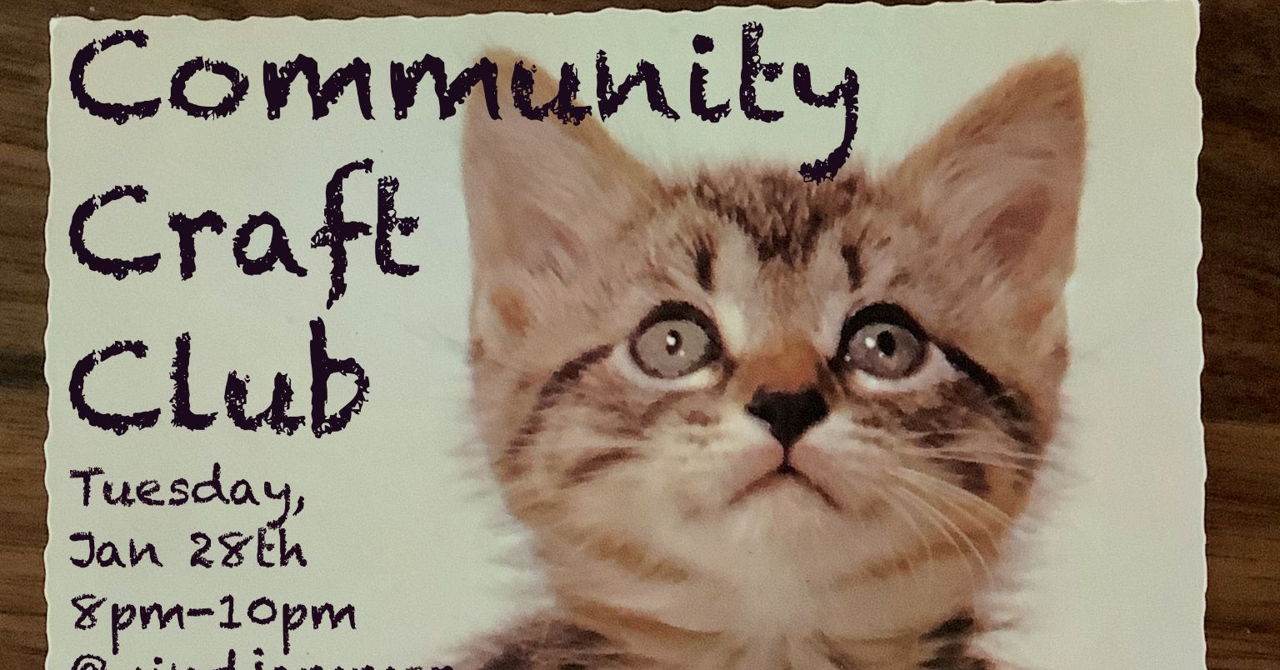 Community
Craft
Club
Tuesday,
Jan 28th
8pm-10pm
@